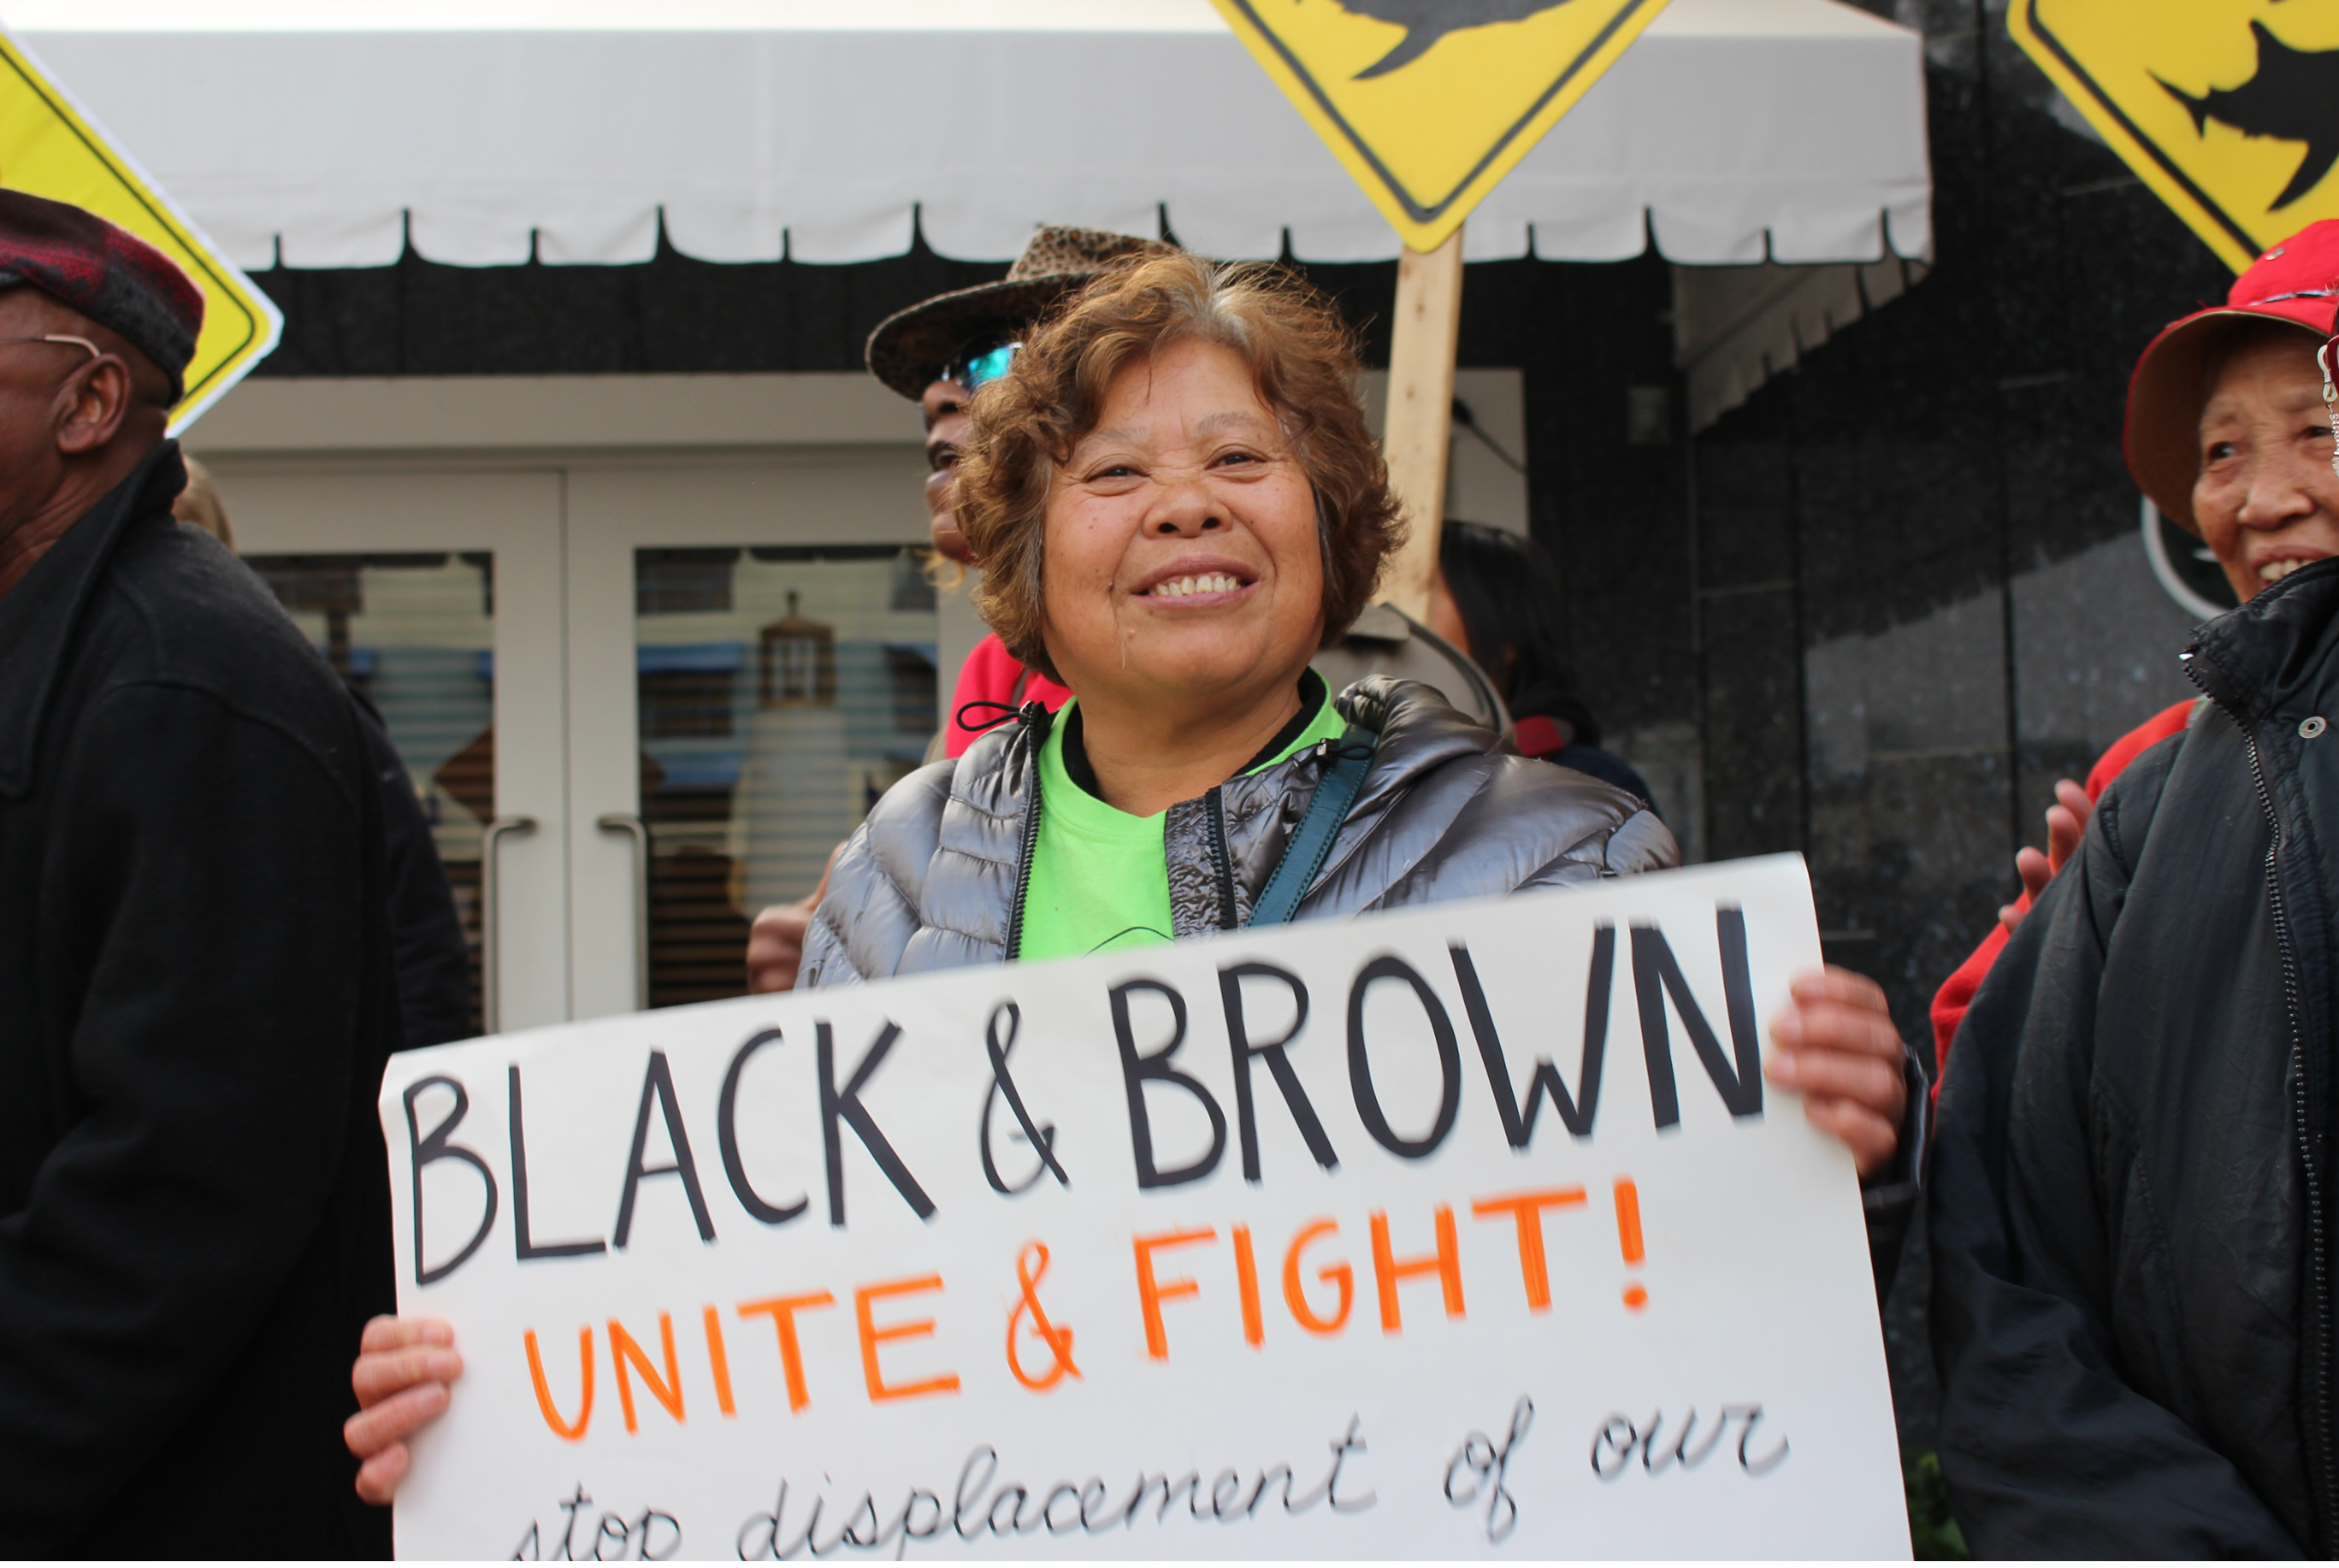 BLACK & BROWN
UNITE & FIGHT!
stop displacement of our